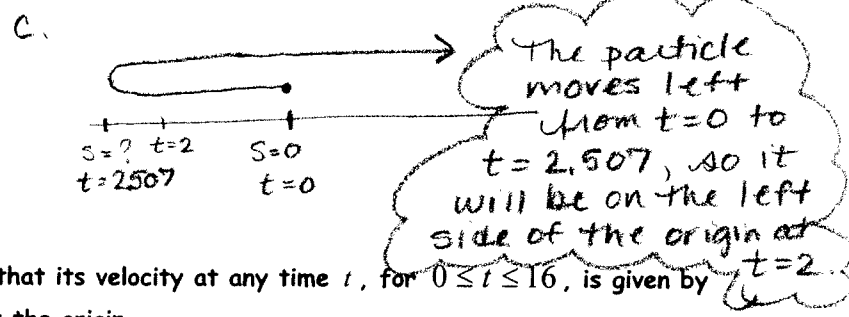 C.
The particle
moves left
from t=0 to
t=2.507, so it
will be on the left
side of the origin at
t=2.
S=? t=2 S=0
t=2507 t=0
that its velocity at any time t, for 0 ≤ t ≤ 16, is given by
the origin